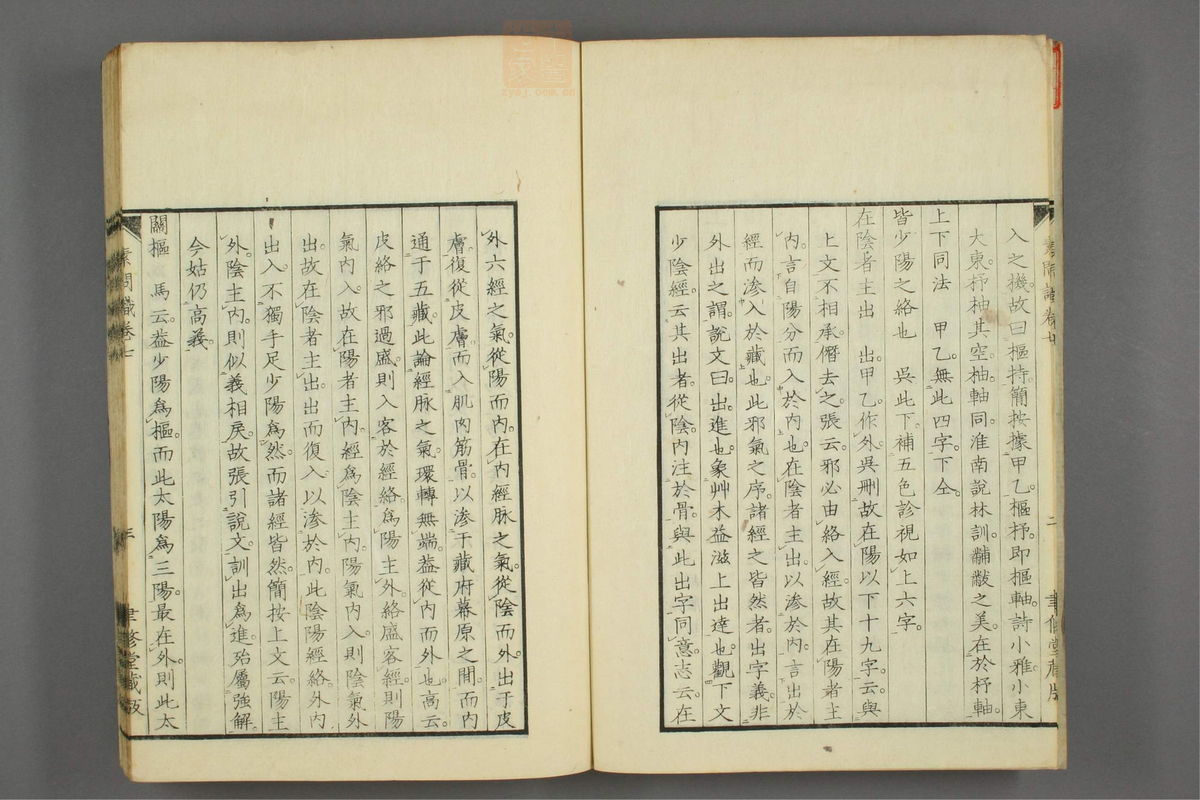 入之機。故曰樞持。簡按據甲乙。樞杼即樞軸。詩小雅小東
大東。杼柚其空。柚軸同。淮南說林訓。黼黻之美。在於杼軸。
上下同法　甲乙。無此四字。下仝。
皆少陽之絡也　吳此下。補五色診視如上六字。
在陰者主出　出甲乙作外。吳刪故在陽以下十九字。云。與
上文不相承。僭去之。張云。邪必由絡入經。故其在陽者主
內。言自陽分而入於內也。在陰者主出。以滲於內。言出於
經而滲入於藏也。此邪氣之序。諸經之皆然者。出字義。非
外出之謂。說文曰。出進也。象艸木益滋上出達也。觀下文
少陰經。云其出者。從陰內注於骨。與此出字同意。志云。在
二
聿修堂藏版
外六經之氣。從陽而內。在內經脉之氣。從陰而外。出于皮
膚。復從皮膚而入肌肉筋骨。以滲于藏府幕原之間。而內
通于五藏。此論經脉之氣。環轉無端。蓋從內而外也。高云。
皮絡之邪過盛。則入客於經。絡爲陽主外。絡盛客經。則陽
氣內入。故在陽者主內。經爲陰主內。陽氣內入。則陰氣外
出。故在陰者主出。出而復入。以滲於內。此陰陽經絡。外內
出入。不獨手足少陽爲然。而諸經皆然。簡按上文云。陽主
外。陰主內。則似義相戾。故張引說文。訓出爲進。殆屬強解。
今姑仍高義。
關樞　馬云。蓋少陽爲樞。而此太陽爲三陽。最在外。則此太
素問識卷七
三
聿修堂藏版